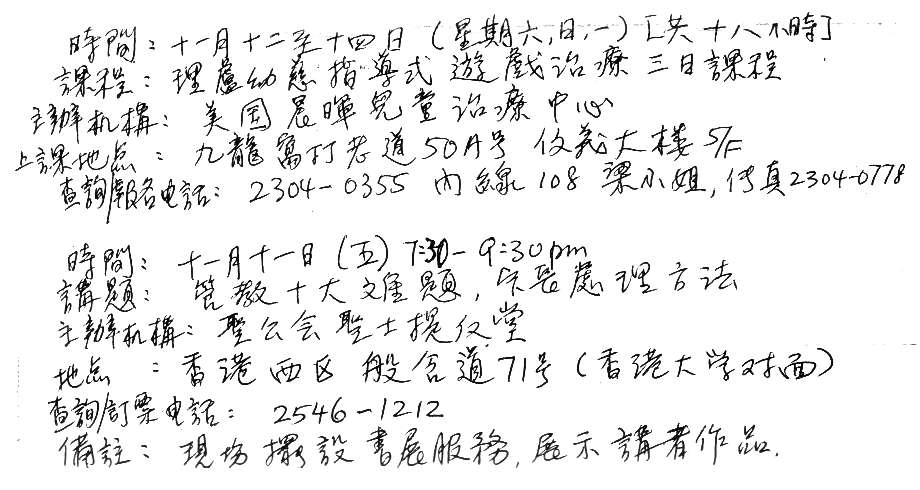 時間：十一月十二至十四日（星期六,日,一）[共十八小時]
課程：理盧幼慈指導式遊戲治療三日課程
主辦机構：美国晨暉兒童治療中心
上課地点：九龍窩打老道50A号 信義大楼 5/F
查詢/報名電話：2304-0355 內線108 梁小姐，传真2304-0778
時間：十一月十一日（五）7:30-9:30pm
講題：管教十大难題，家長處理方法
主辦机構：聖公会聖士提反堂
地点：香港西区般含道71号（香港大学对面）
查詢/訂票電話：2546-1212
備註：現场擺設書展服務，展示講者作品.